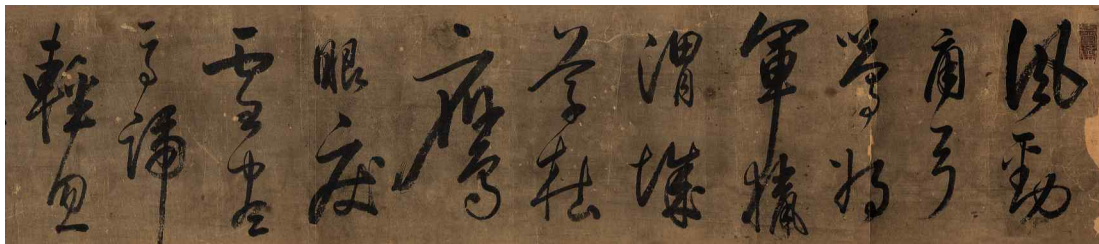 風勁
角弓
鳴將
軍獵
渭城
草枯
鷹
眼疾
雪盡
馬蹄
輕忽